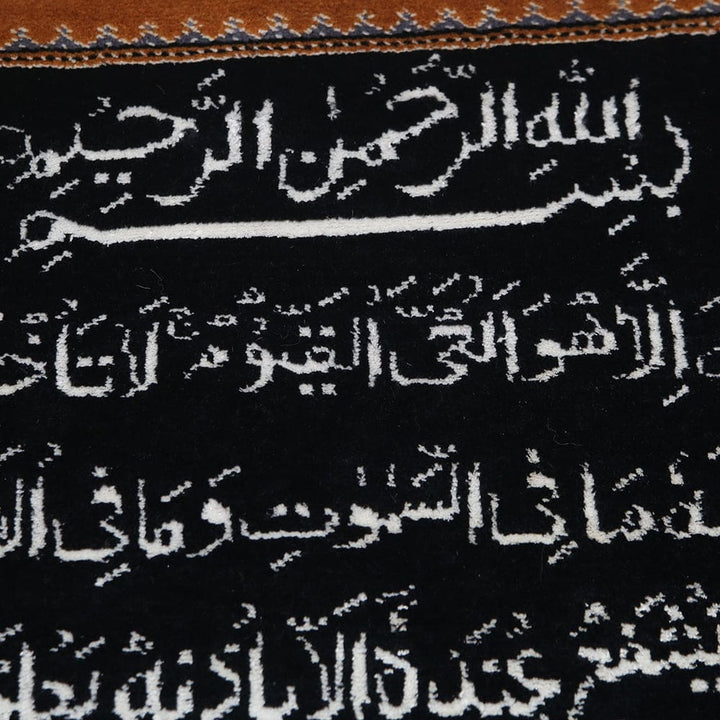 بِسْمِ اللهِ الرَّحْمٰنِ الرَّحِيْمِ
اِلَّا هُوَ الْحَىُّ الْقَيُّوْمُ لَا تَاْخُ
مَا فِى السَّمٰوٰتِ وَمَا فِى الْاَ
يَشْفَعُ عِنْدَهٗ اِلَّا بِاِذْنِهٖ يَعْلَمُ